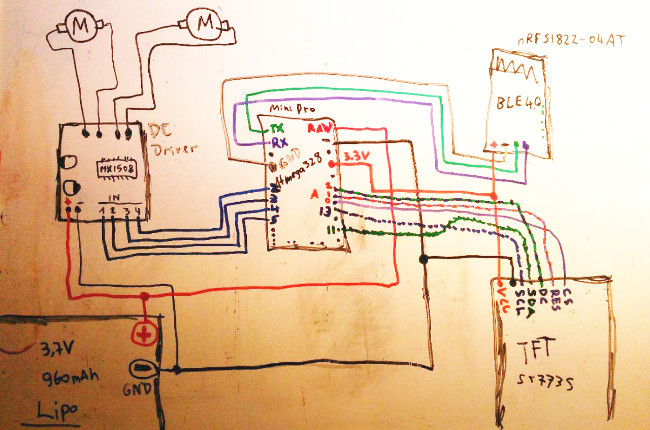 M
M
nRF51822-04AT
BLE40
Mini Pro
TX
RX
RAW
GND
3.3V
Atmega328
A
13
11
DC
Driver
MX1508
+
-
IN
1 2 3 4
VCC
SCL
SDA
DC
RES
CS
TFT
ST7735
+
3,7V
960mAh
Lipo
-
GND